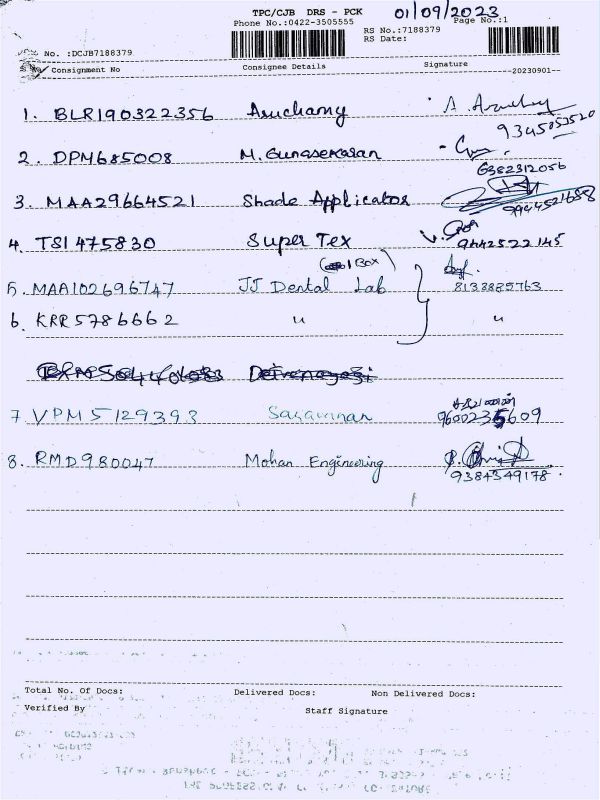 TPC/CJB DRS - PCK 01/09/2023
Phone No.:0422-3505555 Page No.:1
RS No.:7188379
RS Date:
No. :DCJB7188379
Consignment No Consignee Details Signature
--20230901--
1. BLR190322356 Aruchamy
9345053520
2. DPM685008 M. Gunasekaran
6382312056
3. MAA29664521 Shade Applicator
9944521688
4. TSI475830 Super Tex 9442522145
1 Box
5. MAA102696747 JJ Dental Lab 8133885763
6. KRR5786662 " "
7. VPM5129393 Saravanan சரவணன்
9600235609
8. RMD980047 Mohan Engineering
9384349178
Total No. Of Docs: Delivered Docs: Non Delivered Docs:
Verified By Staff Signature